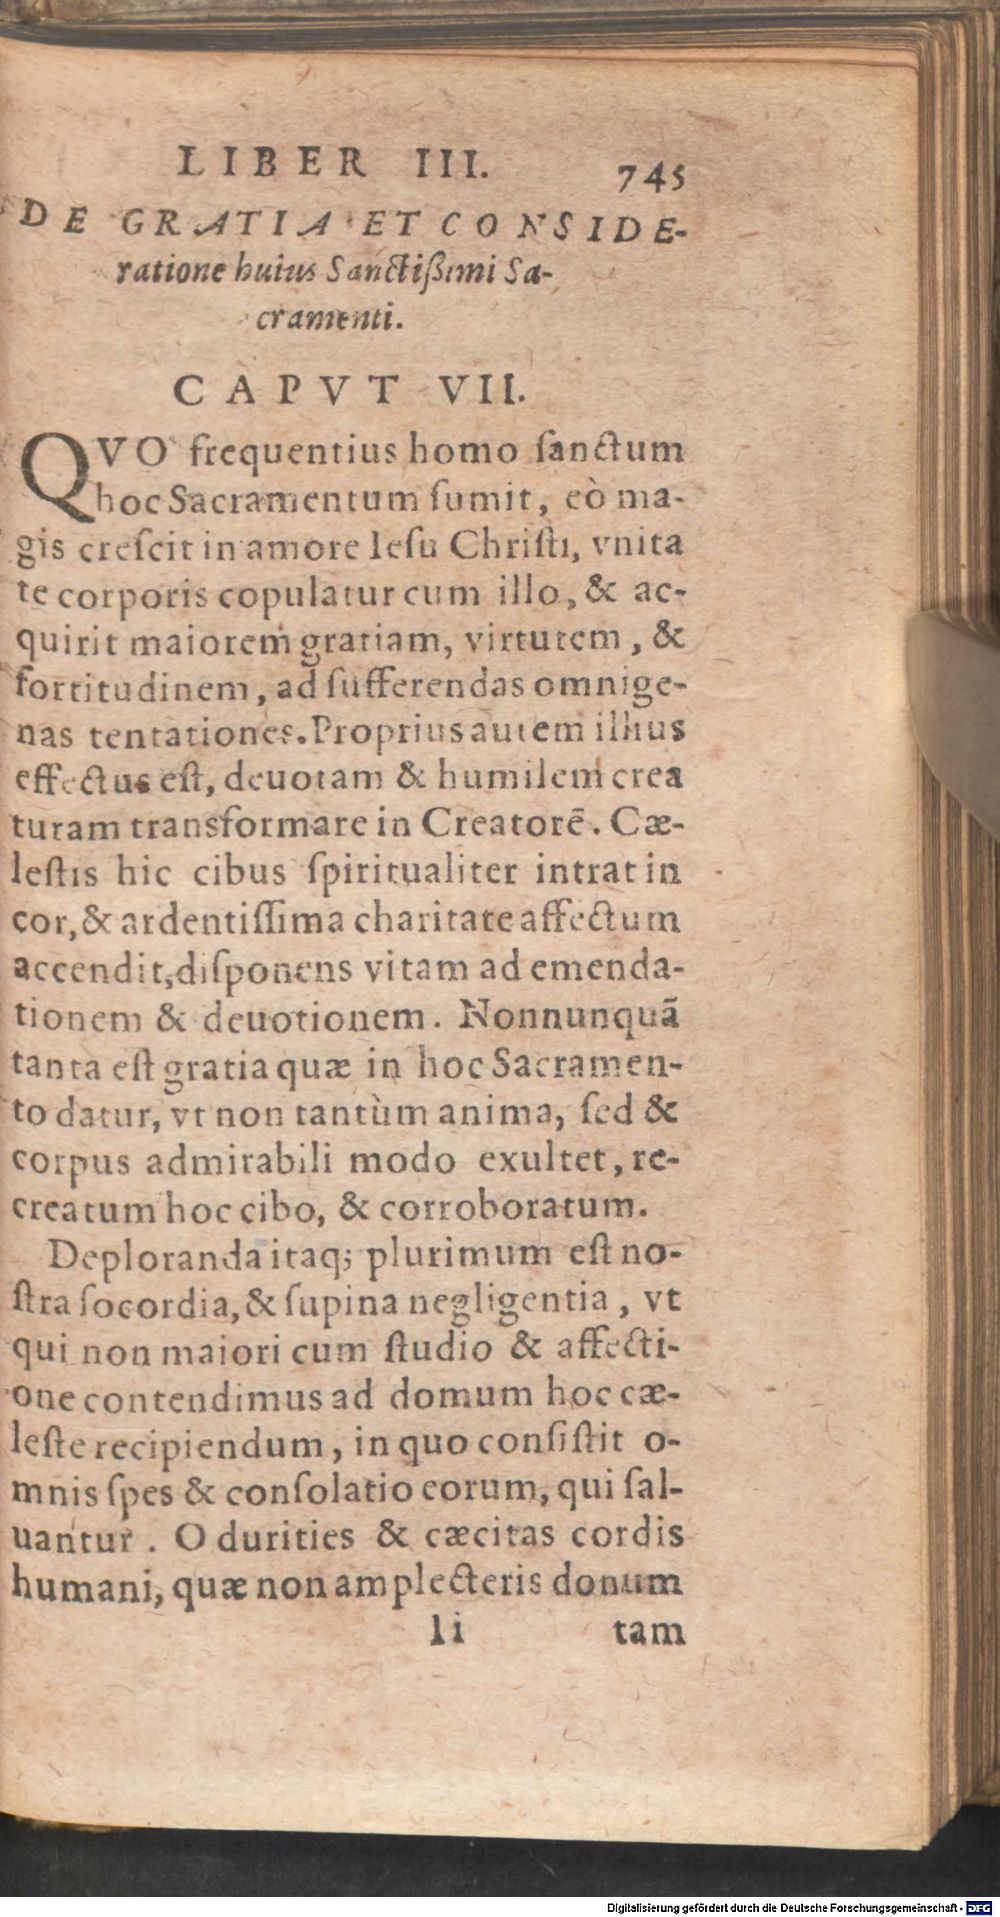 LIBER III. 745
DE GRATIA ET CONSIDE-
ratione huius Sanctißimi Sa-
cramenti.
CAPVT VII.
QVO frequentius homo ſanctum
hoc Sacramentum ſumit, eò ma-
gis creſcit in amore Ieſu Chriſti, vnita
te corporis copulatur cum illo, & ac-
quirit maiorem gratiam, virtutem, &
fortitudinem, ad ſufferendas omnige-
nas tentationes. Proprius autem illius
effectus eſt, deuotam & humilem crea
turam transformare in Creatorē. Cæ-
leſtis hic cibus ſpiritualiter intrat in
cor, & ardentiſſima charitate affectum
accendit, diſponens vitam ad emenda-
tionem & deuotionem. Nonnunquā
tanta eſt gratia quæ in hoc Sacramen-
to datur, vt non tantùm anima, ſed &
corpus admirabili modo exultet, re-
creatum hoc cibo, & corroboratum.
Deploranda itaq; plurimum eſt no-
ſtra ſocordia, & ſupina negligentia, vt
qui non maiori cum ſtudio & affecti-
one contendimus ad domum hoc cæ-
leſte recipiendum, in quo conſiſtit o-
mnis ſpes & conſolatio eorum, qui ſal-
uantur. O durities & cæcitas cordis
humani, quæ non amplecteris donum
Ii tam
Digitalisierung gefördert durch die Deutsche Forschungsgemeinschaft - DFG